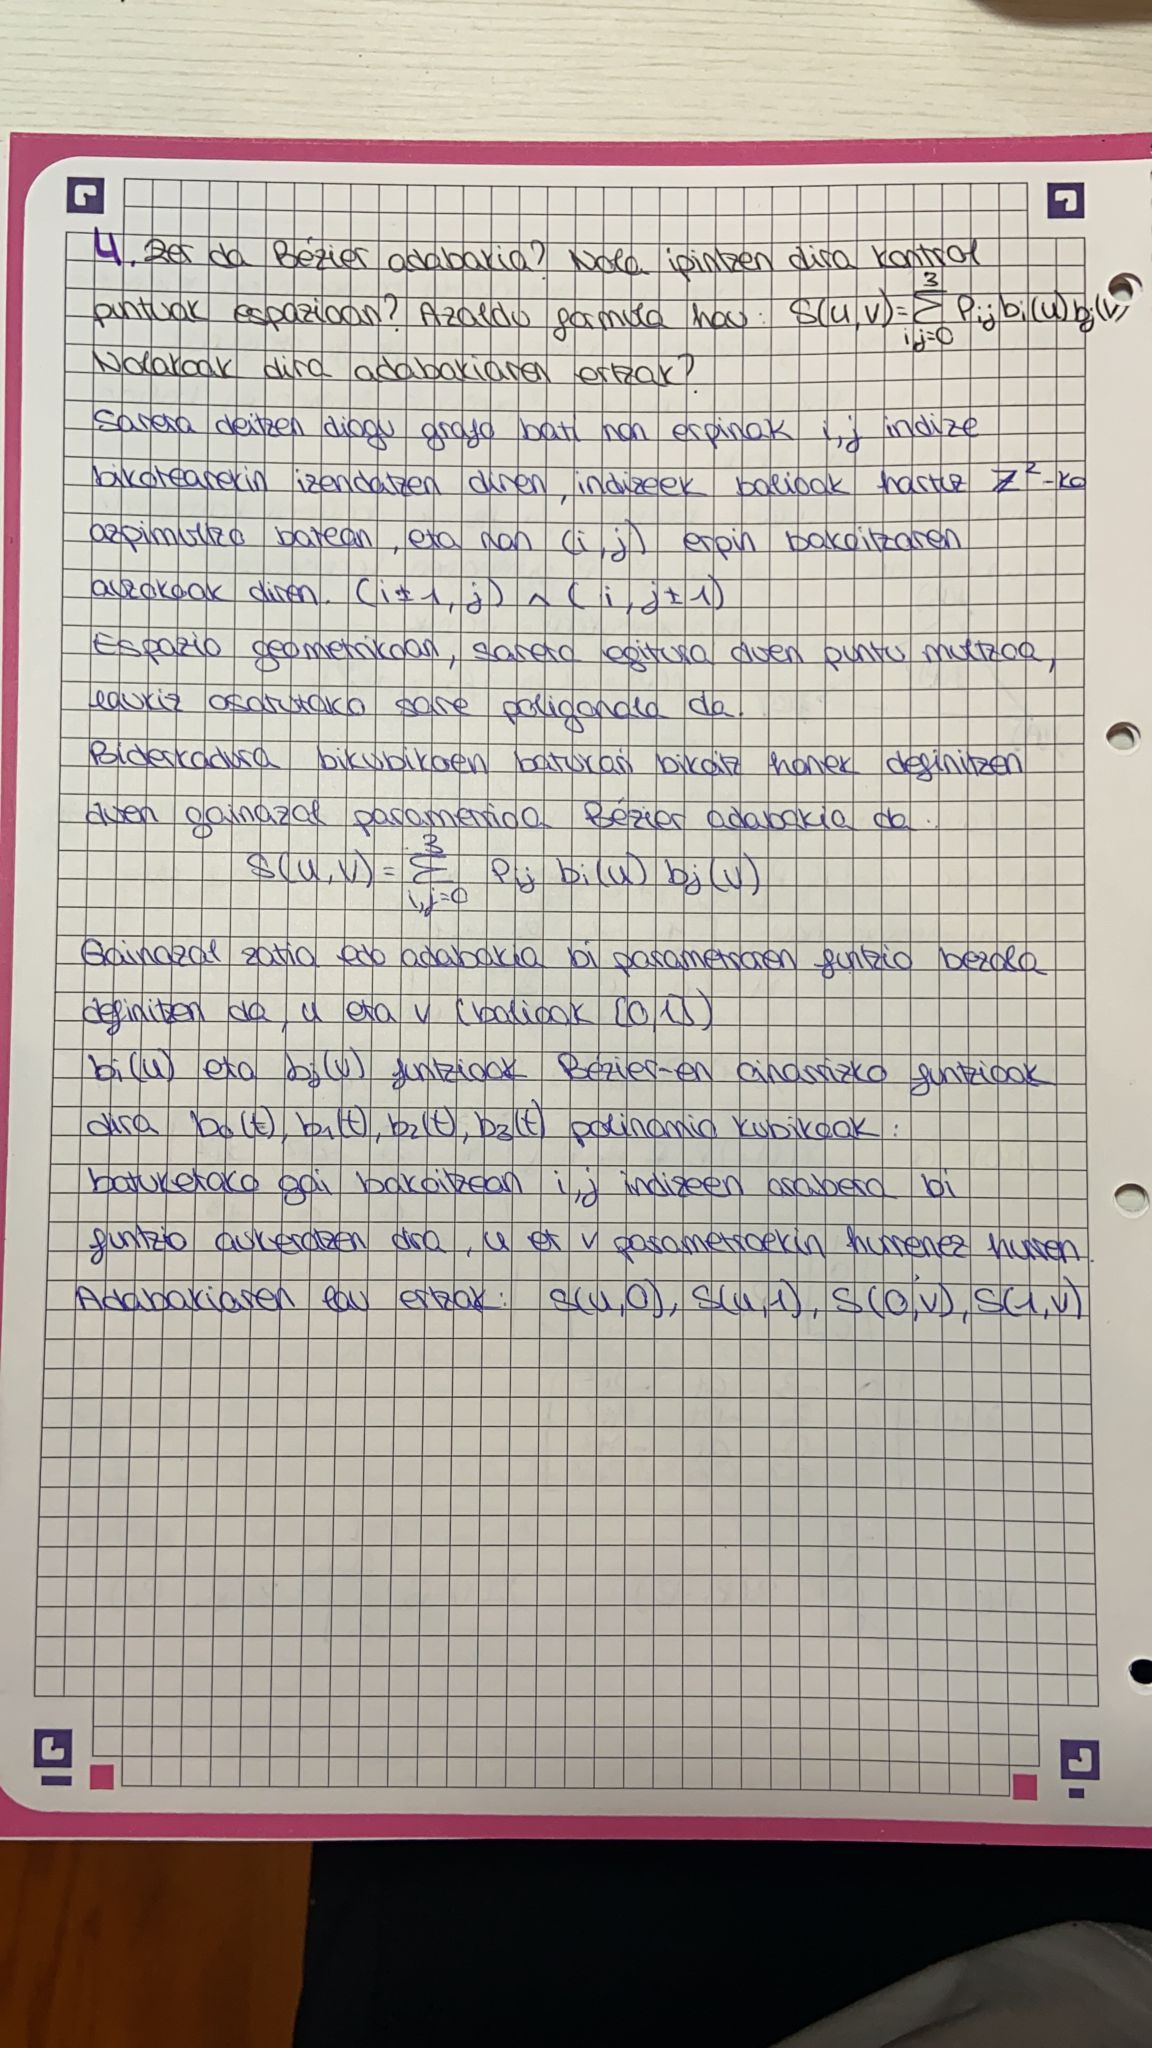 4. Zer da Bézier adabakia? Nola ipintzen dira kontrol
puntuak espazioan? Azaldu formula hau: S(u,v)=∑³ᵢ,ⱼ₌₀ Pij bi(u) bj(v)
Nolakoak dira adabakiaren ertzak?
Sareta deitzen diogu grafo bati non erpinak i,j indize
bikotearekin izendatzen diren, indizeek balioak hartuz Z²-ko
azpimultzo batean, eta non (i,j) erpin bakoitzaren
auzokoak diren. (i±1,j) ∧ (i,j±1)
Espazio geometrikoan, sareta egitura duen puntu multzoa,
laukiz osatutako sare poligonala da.
Biderkadura bikubikoen batukari bikoitz honek definitzen
duen gainazal parametrioa Bézier adabakia da:
S(u,v)=∑³ᵢ,ⱼ₌₀ Pij bi(u) bj(v)
Gainazal zatia edo adabakia bi parametroen funtzio bezala
definitzen da, u eta v (balioak [0,1])
bi(u) eta bj(v) funtzioak Bézier-en oinarrizko funtzioak
dira b0(t), b1(t), b2(t), b3(t) polinomio kubikoak:
batuketako gai bakoitzean i,j indizeen arabera bi
funtzio aukeratzen dira, u et v parametroekin hurrenez hurren.
Adabakiaren lau ertzak: S(u,0), S(u,1), S(0,v), S(1,v)